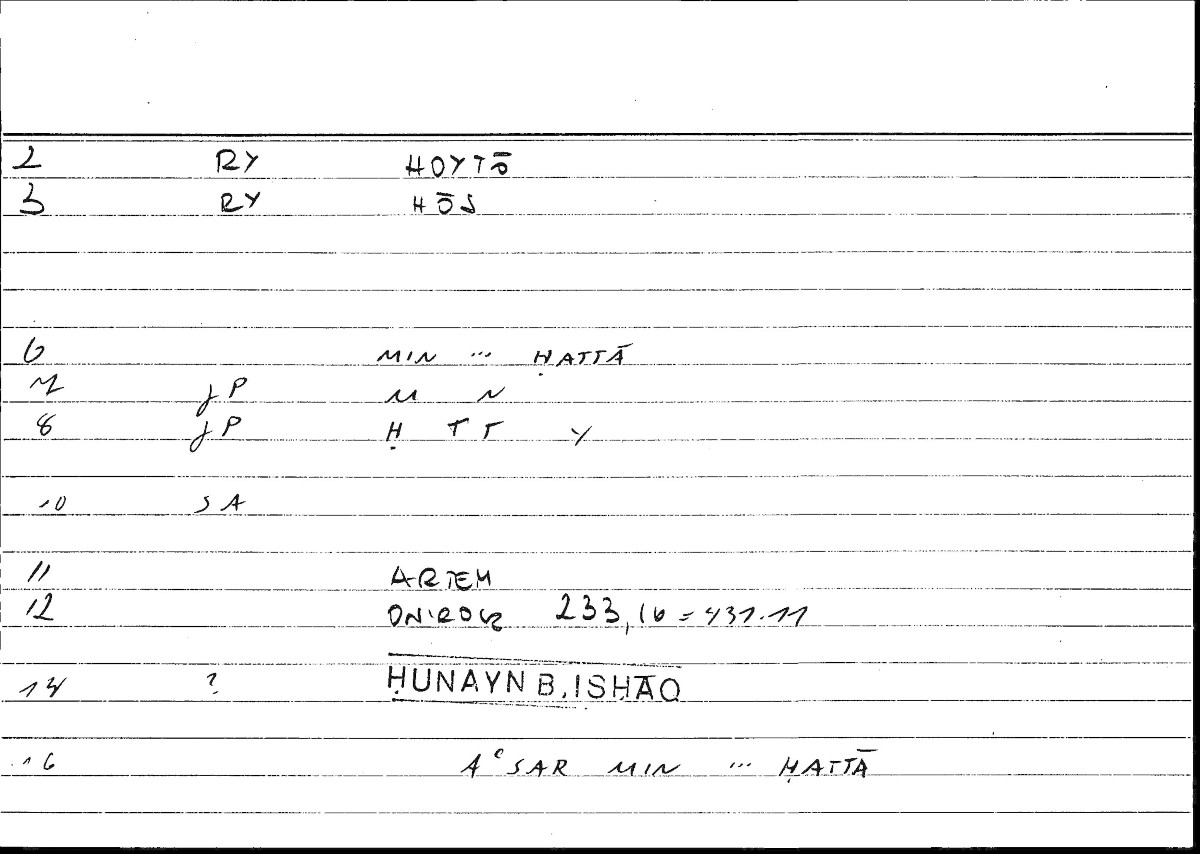 2 RY HOYTŌ
3 RY HŌS
6 MIN ... ḤATTĀ
7 JP M N
8 JP Ḥ T T Y
10 SA
11 ARTEM
12 ONIROCR 233,16 = 431.11
14 ? ḤUNAYN B. ISḤĀQ
16 AʿSAR MIN ... ḤATTĀ